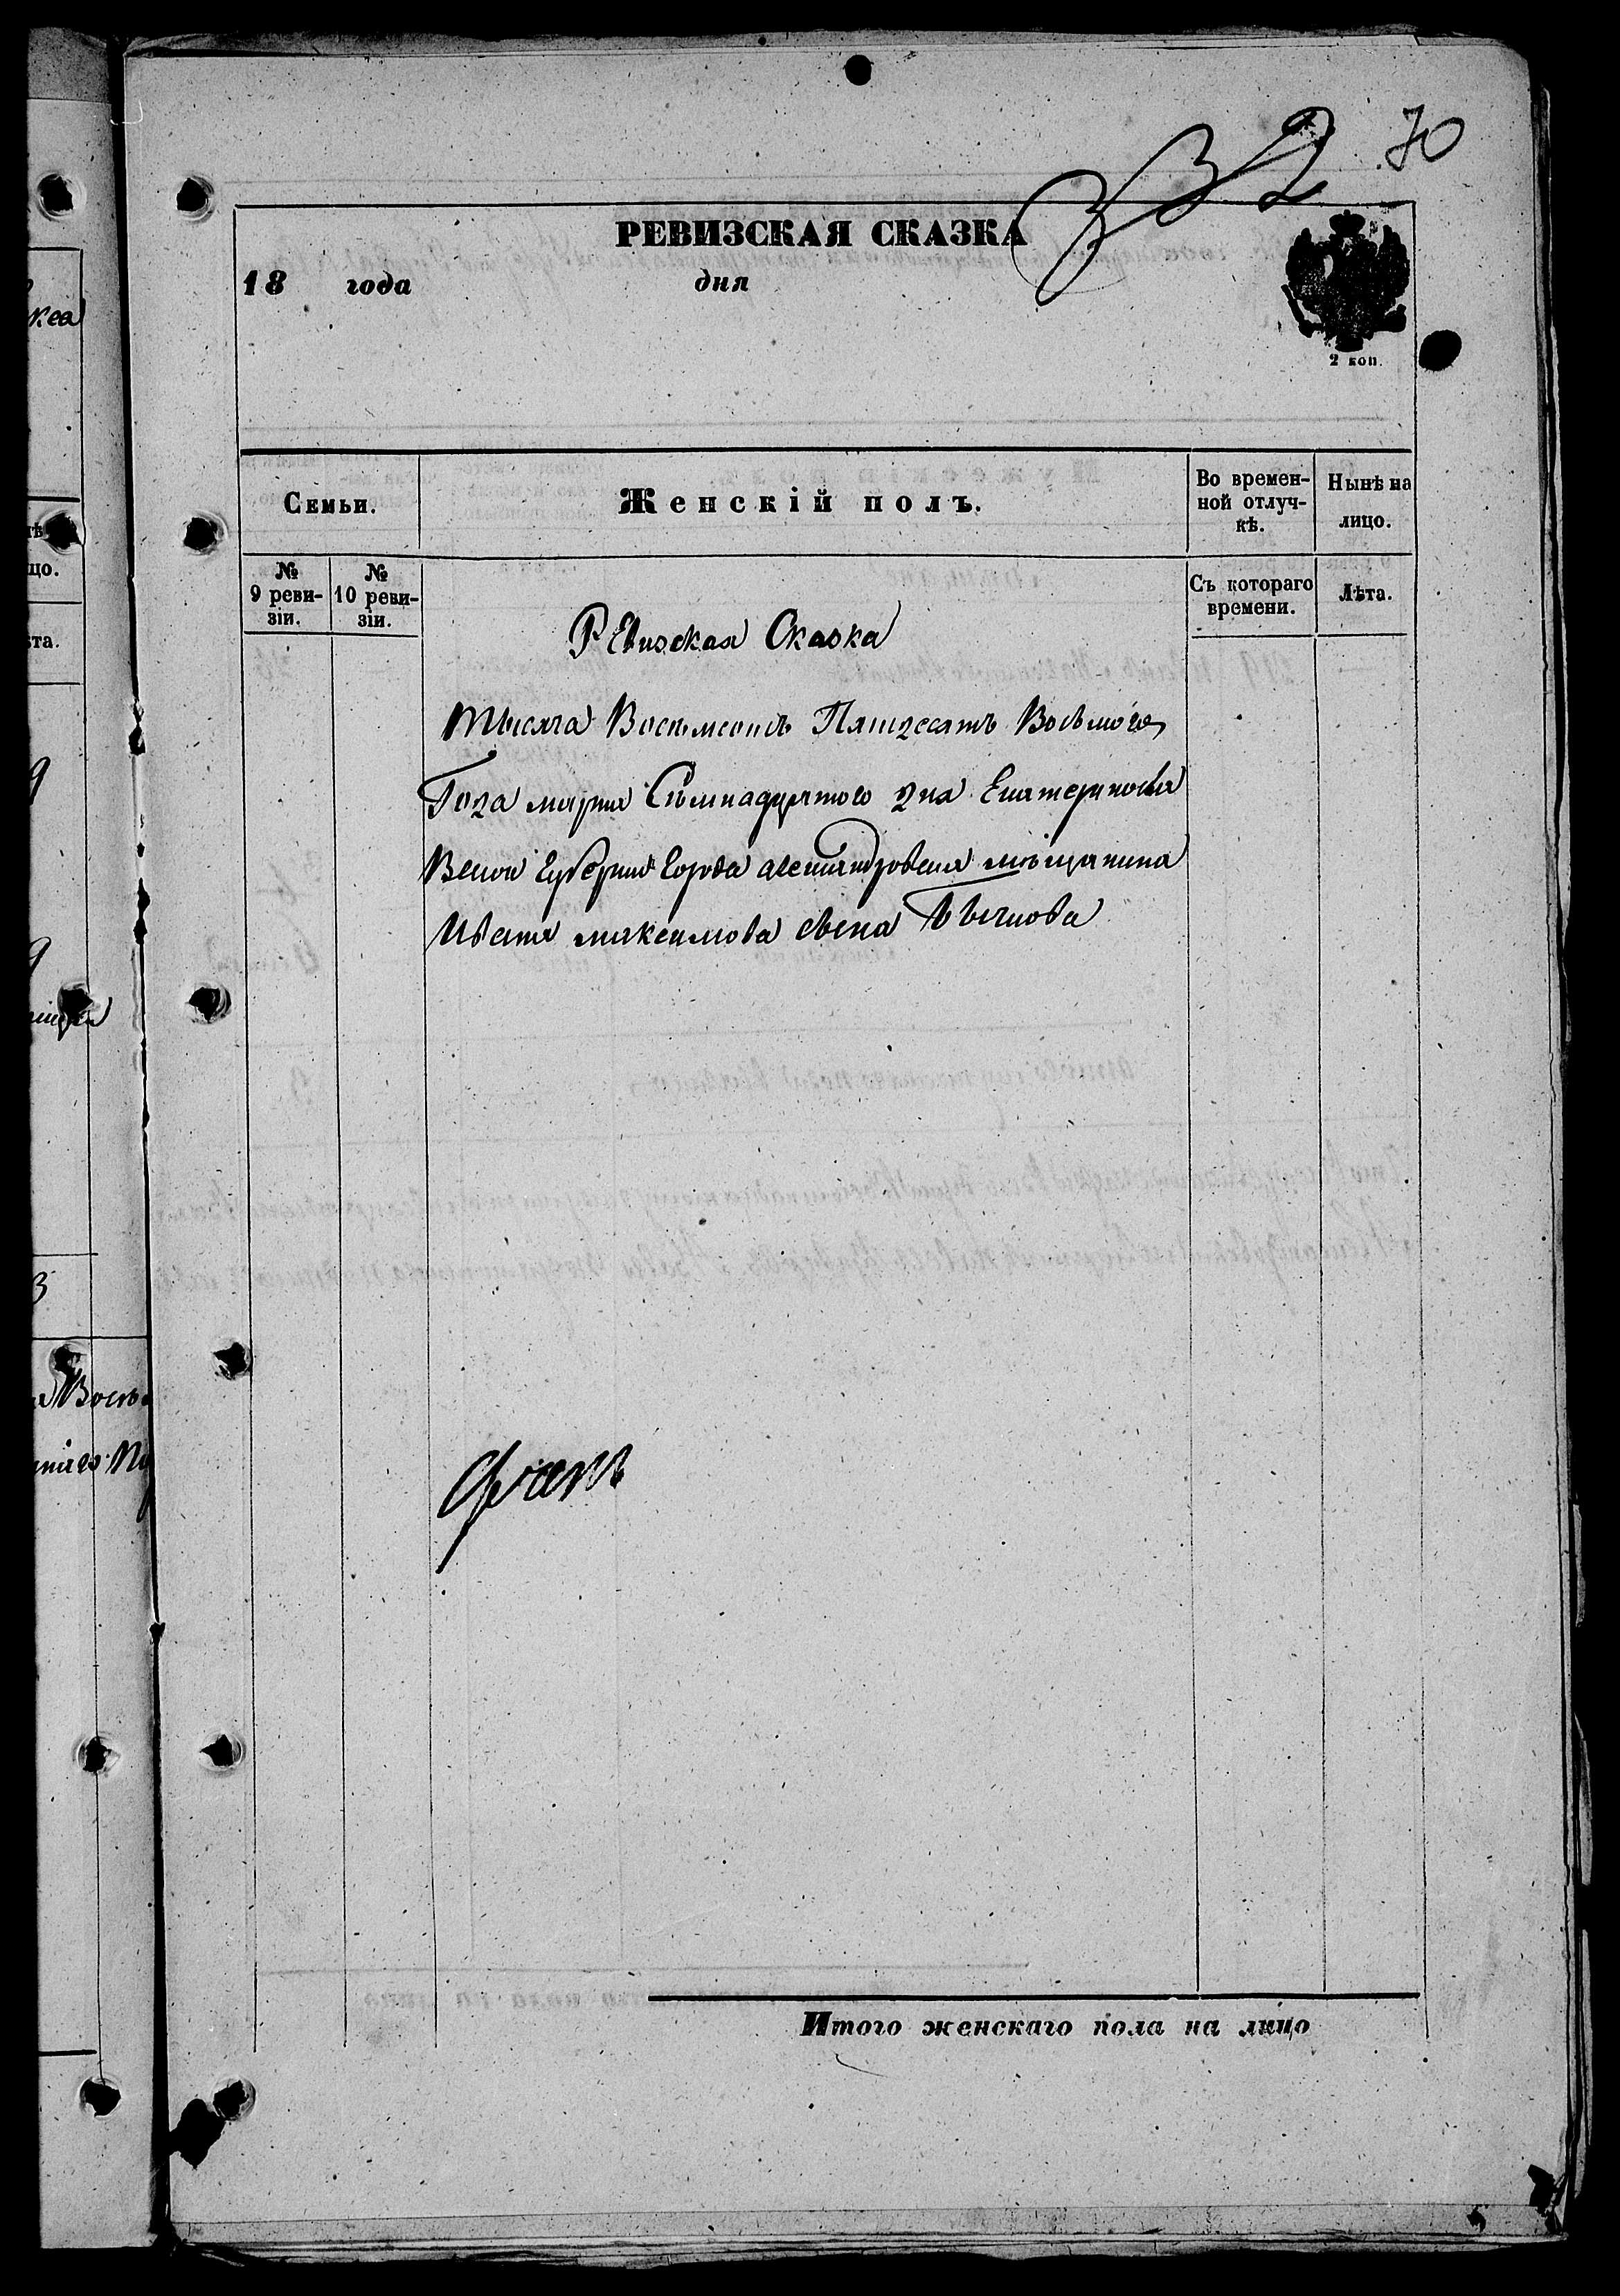 70
332
РЕВИЗСКАЯ СКАЗКА
18 года дня
2 коп.
Семьи.
Женскій полъ.
Во времен-
ной отлуч-
кѣ.
Нынѣ на
лицо.
№
9 реви-
зіи.
№
10 реви-
зіи.
Съ котораго
времени.
Лѣта.
Ревизская Сказка
Тысяча Восемсотъ Пятдесятъ Восьмого
Года марта Семнадцятого дня Екатеринosла
Вской Губерніи Города александровска мѣщанина
Ивана максимова сына Бычкова
Итого женскаго пола на лицо